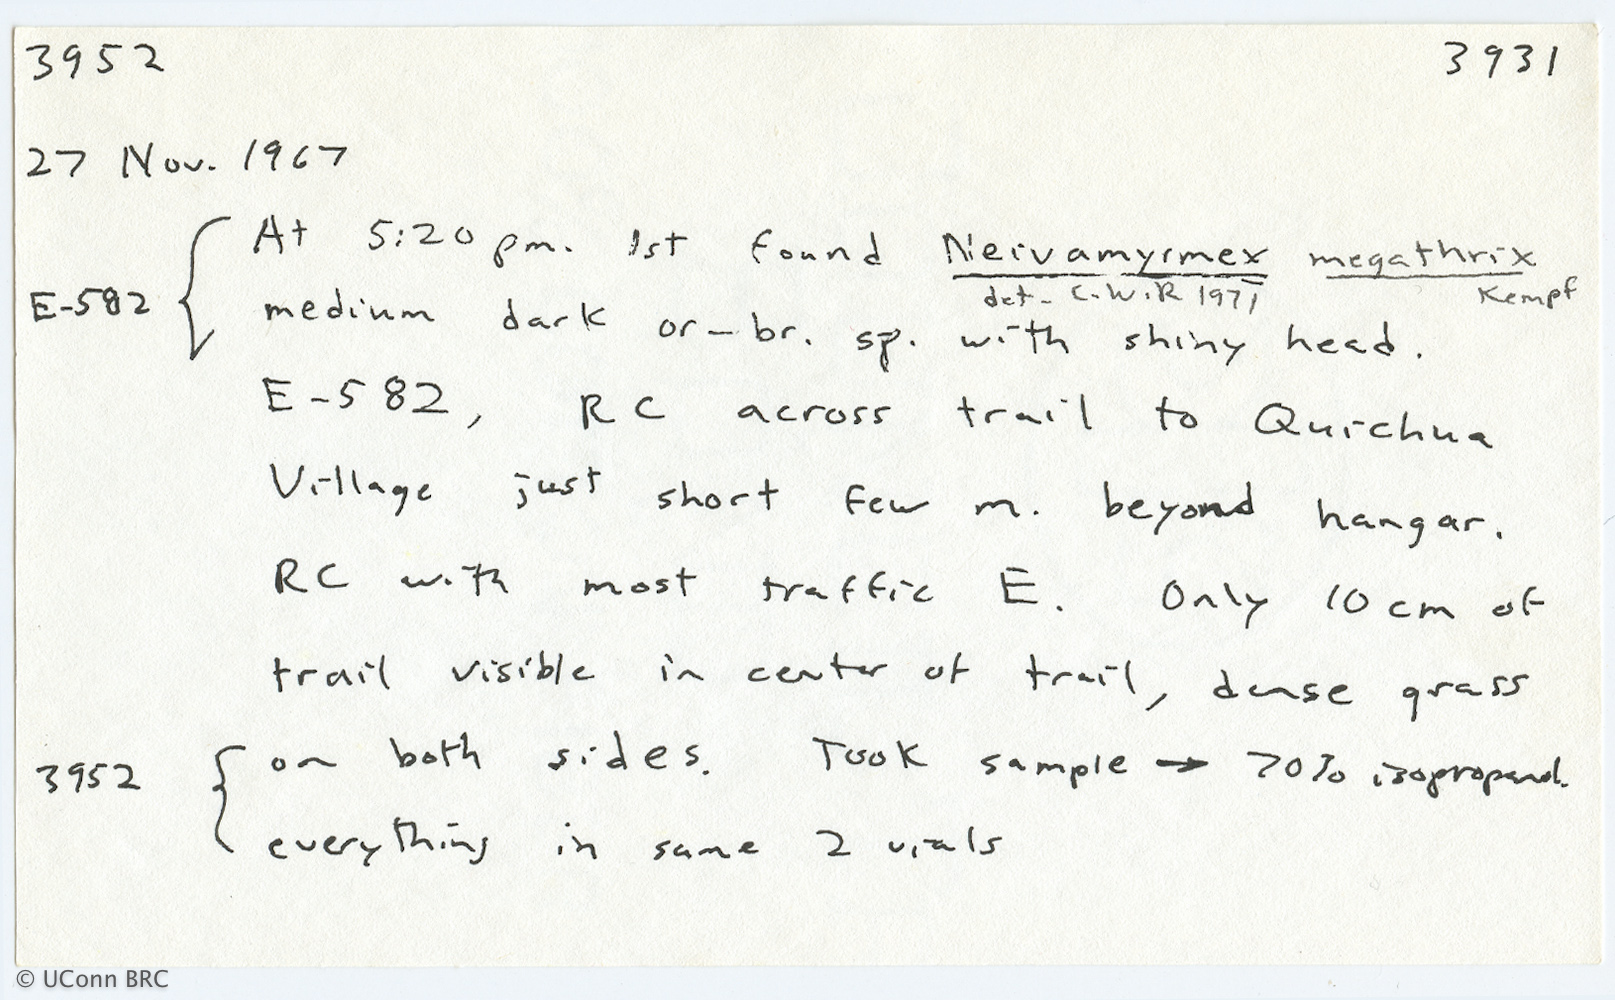 3952 3931
27 Nov. 1967
At 5:20 pm. 1st found Neivamyrmex megathrix
det. C.W.R 1971 Kempf
E-582 { medium dark or-br. sp. with shiny head.
E-582, RC across trail to Quichua
Village just short few m. beyond hangar.
RC with most traffic E. Only 10 cm of
trail visible in center of trail, dense grass
3952 { on both sides. Took sample → 70% isopropanol.
everything in same 2 vials
© UConn BRC